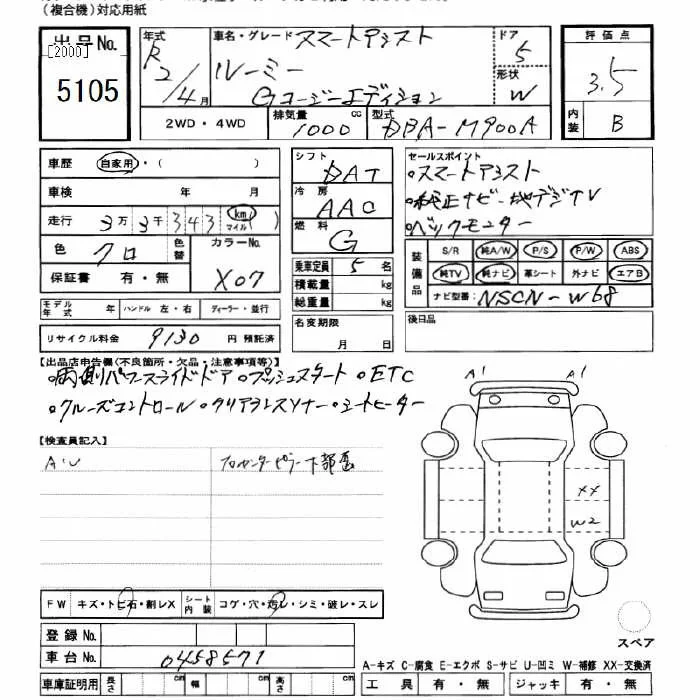 （複合機）対応用紙
出品No.
[2000]
5105
年式
R
2/4月
車名・グレード スマートアシスト
ルーミー
Gコージーエディション
ドア
5
形状
W
評価点
3.5
内装
B
2WD・4WD
排気量
1000
cc
型式
DBA-M900A
車歴 自家用・（ ）
車検 年 月
走行 3万3千343 km マイル（ ）
色 クロ
色替
カラーNo.
X07
保証書 有・無
モデル年式 年 ハンドル 左・右 ディーラー・並行
リサイクル料金 9130 円 預託済
シフト
DAT
冷房
AAC
燃料
G
乗車定員 5 名
積載量 kg
総重量 kg
名変期限
月 日
セールスポイント
・スマートアシスト
・純正ナビ・地デジTV
・バックモニター
装備品
S/R 純A/W P/S P/W ABS
純TV 純ナビ 革シート 外ナビ エアB
ナビ型番 NSCN-W68
後日品
【出品店申告欄(不良箇所・欠品・注意事項等)】
・両側パワースライドドア ・プッシュスタート ・ETC
・クルーズコントロール ・クリアランスソナー ・シートヒーター
【検査員記入】
A・U
フロセンターピラー下部
A1
A1
XX
W2
スペア
FW キズ・トビ石・割レX
シート内装 コゲ・穴・汚レ・シミ・破レ・スレ
登録No.
車台No. 0458571
車庫証明用 長さ cm 幅 cm 高さ cm
A-キズ C-腐食 E-エクボ S-サビ U-凹ミ W-補修 XX-交換済
工具 有・無 ジャッキ 有・無